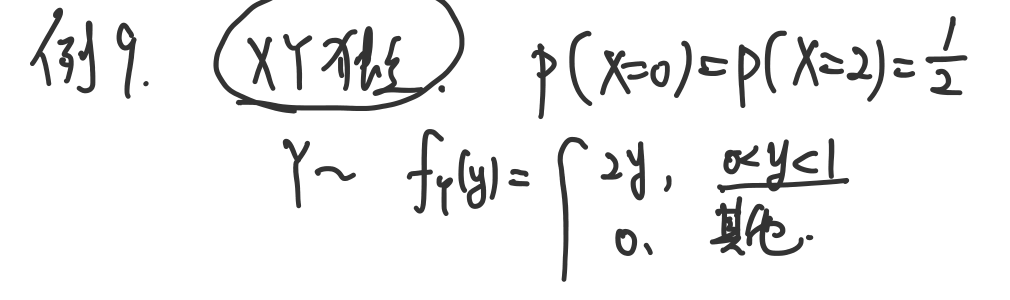 例9. XY独立. P(X=0)=P(X=2)=1/2
Y~ f_Y(y)= { 2y, 0<y<1
0, 其他.